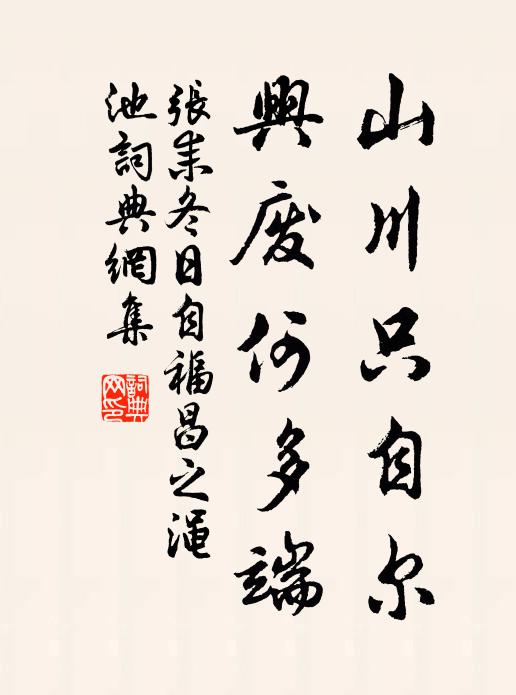 山川只自尔
興废何多端
張耒冬日自福昌之渑
池詞典網集
詞典
网印